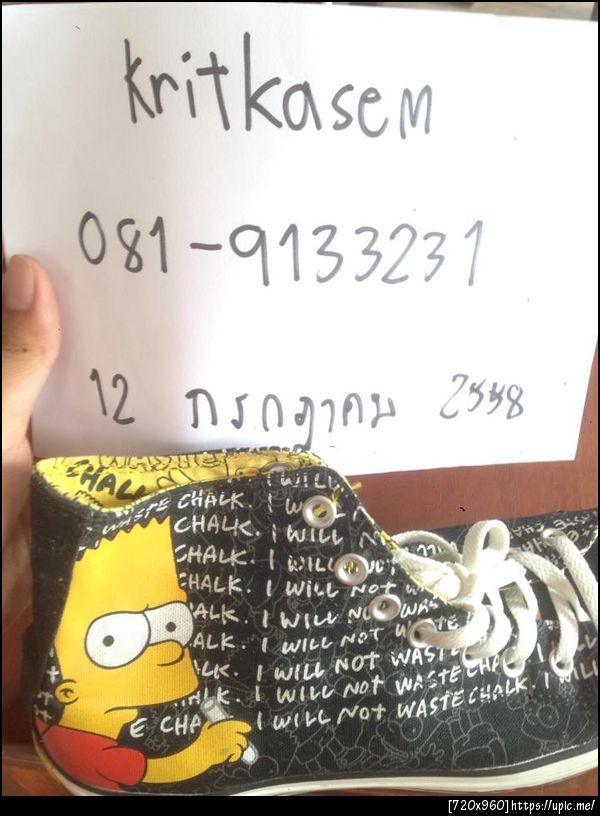 Kritkasem
081-9133231
12 กรกฎาคม 2558
CHALK
WASTE CHALK. I WILL
CHALK. I WILL
CHALK. I WILL NO
CHALK. I WILL NOT
CHALK. I WILL NOT WAS
ALK. I WILL NOT WASTE
ALK. I WILL NOT WASTE CHA
LK. I WILL NOT WASTE CHALK. I WILL
E CHA I WILL NOT WASTE CHALK. I WILL
[720x960]https://upic.me/